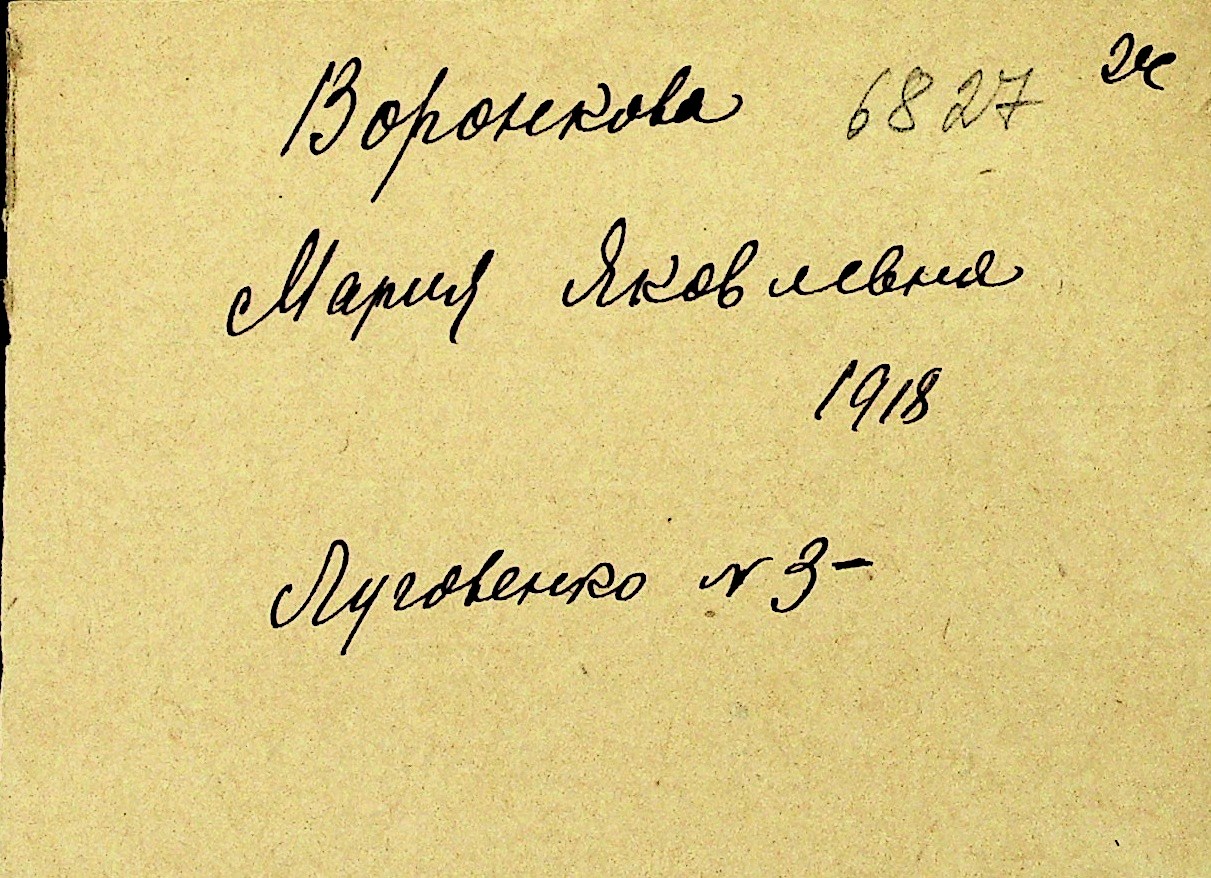 Воронкова 6827 ж
Мария Яковлевна
1918
Луговенко № 3-